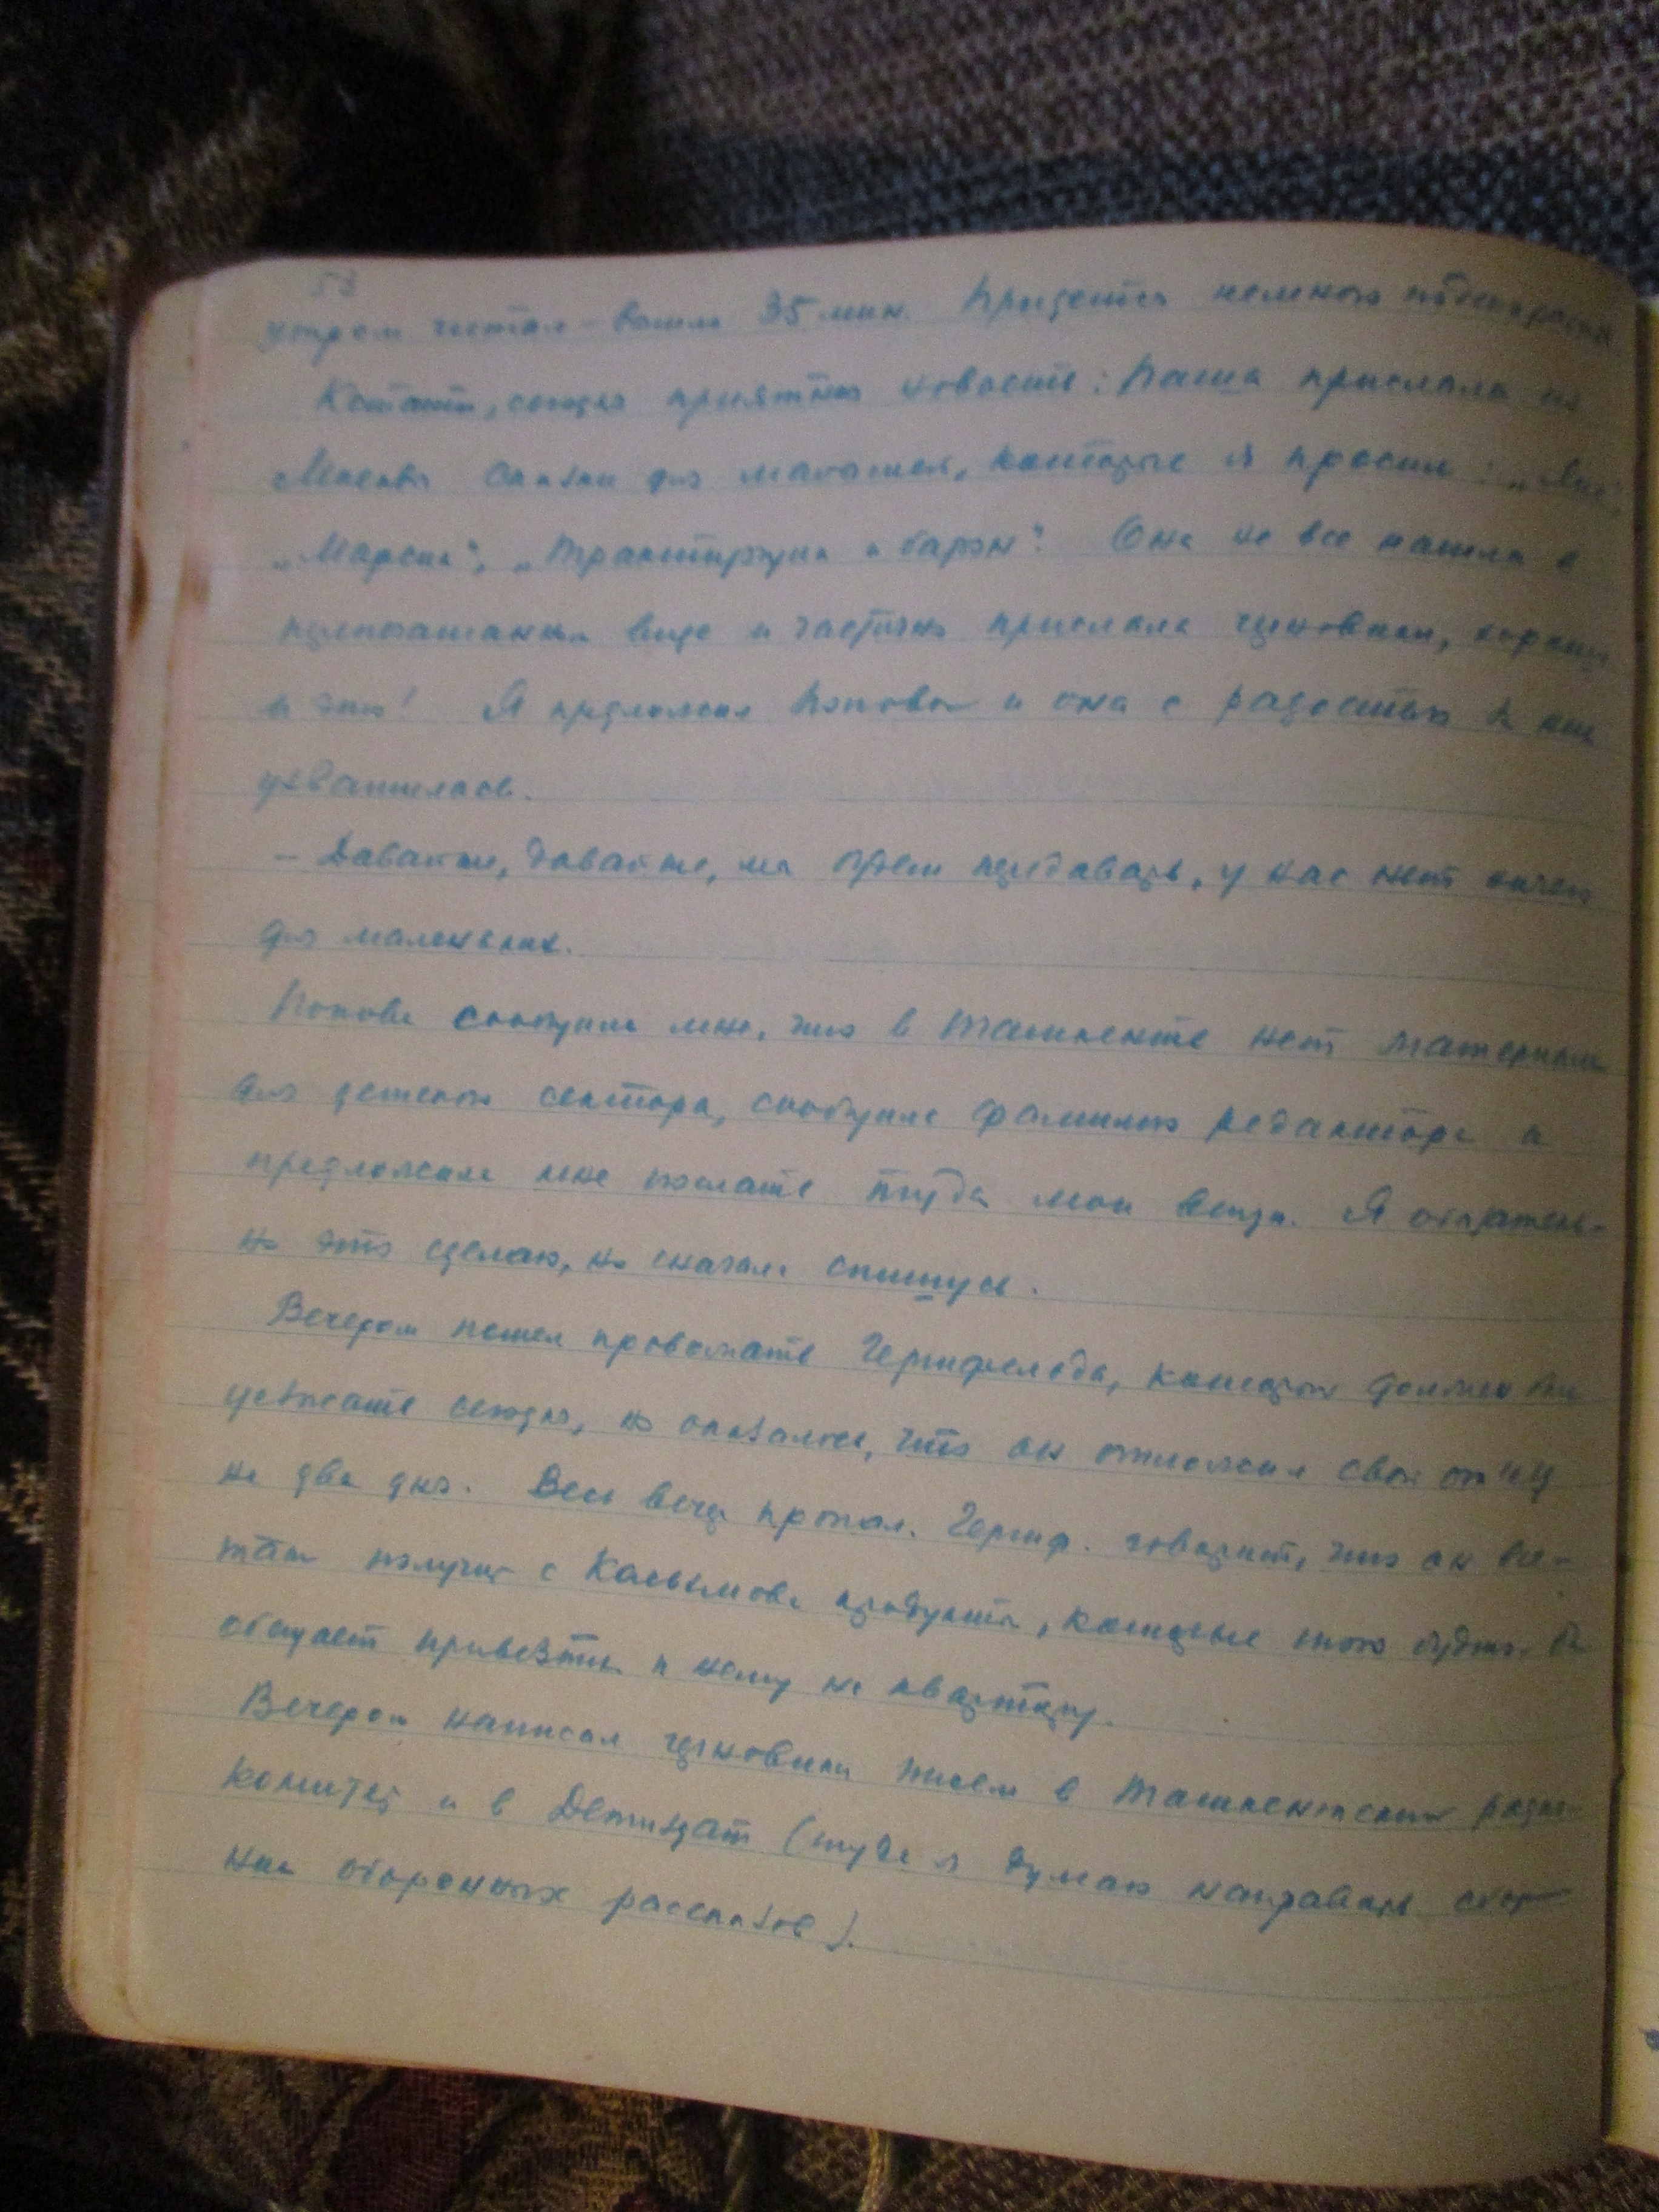 53
утром читал – вышло 35 мин. Придется немного подсократить.
Кстати, сегодня приятная новость: Наша прислала из
Москвы сказки для малышей, которые я просил:
"Марсиа", "и барон". Она не все нашла в
перепечатанном виде и частично прислала черновики, хорошо
и это! Я предложил Поповой и она с радостью к ним
ухватилась.
– Давайте, давайте, мы будем передавать, у нас нет ничего
для маленьких.
Попова сообщила мне, что в Ташкенте нет материала
для детского сектора, сообщила фамилию редактора и
предложила мне послать туда мои вещи. Я обязатель-
но это сделаю, но сначала спишусь.
Вечером пошел провожать Герцфельда, который должен был
уезжать сегодня, но оказалось, что он отложил свой отъезд
на два дня. Весь вечер пропал. Герцф. говорит, что он все-
таки получит с Касымова продукты, которые
обещает привезти к нему на квартиру.
Вечером написал черновики писем в Ташкентский радио-
комитет и в Детиздат (туда я думаю направить сбор-
ник оборонных рассказов).